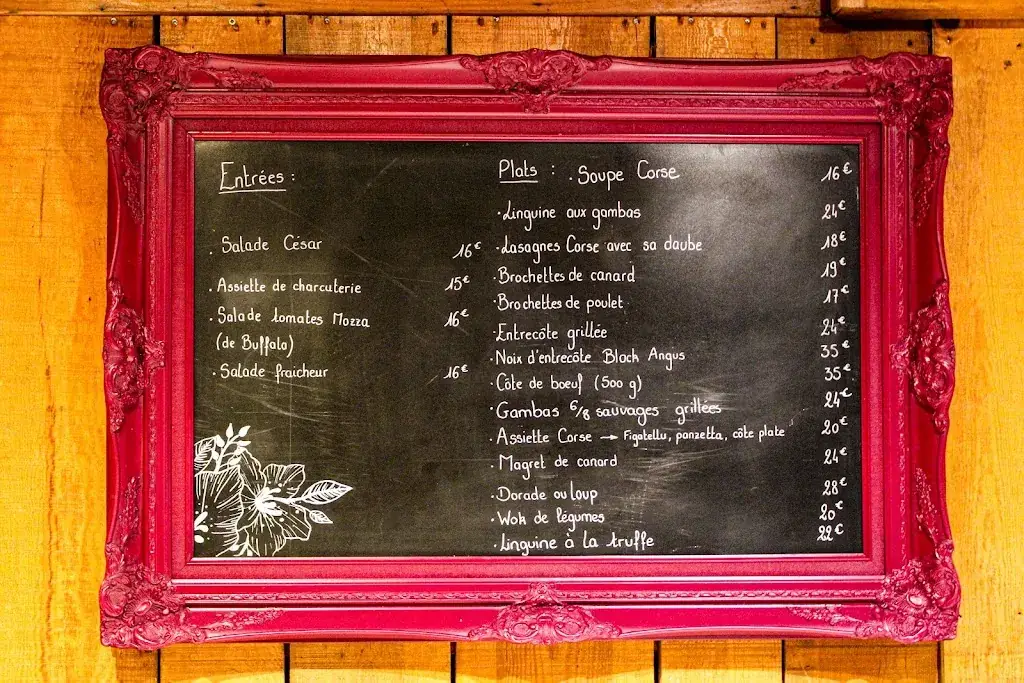 Entrées :
. Salade César 16€
. Assiette de charcuterie 15€
. Salade tomates Mozza 16€
(de Buffala)
. Salade fraicheur 16€
Plats : . Soupe Corse 16€
. Linguine aux gambas 24€
. Lasagnes Corse avec sa daube 18€
. Brochettes de canard 19€
. Brochettes de poulet 17€
. Entrecôte grillée 24€
. Noix d'entrecôte Black Angus 35€
. Côte de boeuf (500 g) 35€
. Gambas 6/8 sauvages grillées 24€
. Assiette Corse → Figatellu, panzetta, côte plate 20€
. Magret de canard 24€
. Dorade ou loup 28€
. Wok de légumes 20€
. Linguine à la truffe 22€